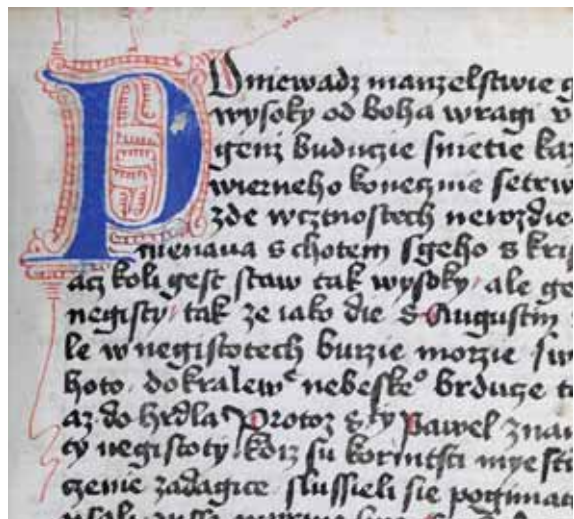 POniewadz manzelstwie g
wysoky od boha wragi v
genz buduczie snietie kaz
wierneho konecznie setrw
zde wcztnostech newzdie
mienaua s chotem sgeho s kris
acz koli gest staw tak wysoky ale ge
negisty tak ze iako die S Augustin
le w negistotech burzie morzie sw
hoto do kralewe nebeskeo brduge t
az do hrdla Protoz s ty pawel znau
ty negistoty kdiz su korintsti mye sti
czenie zadagice slussieli sie pogimac